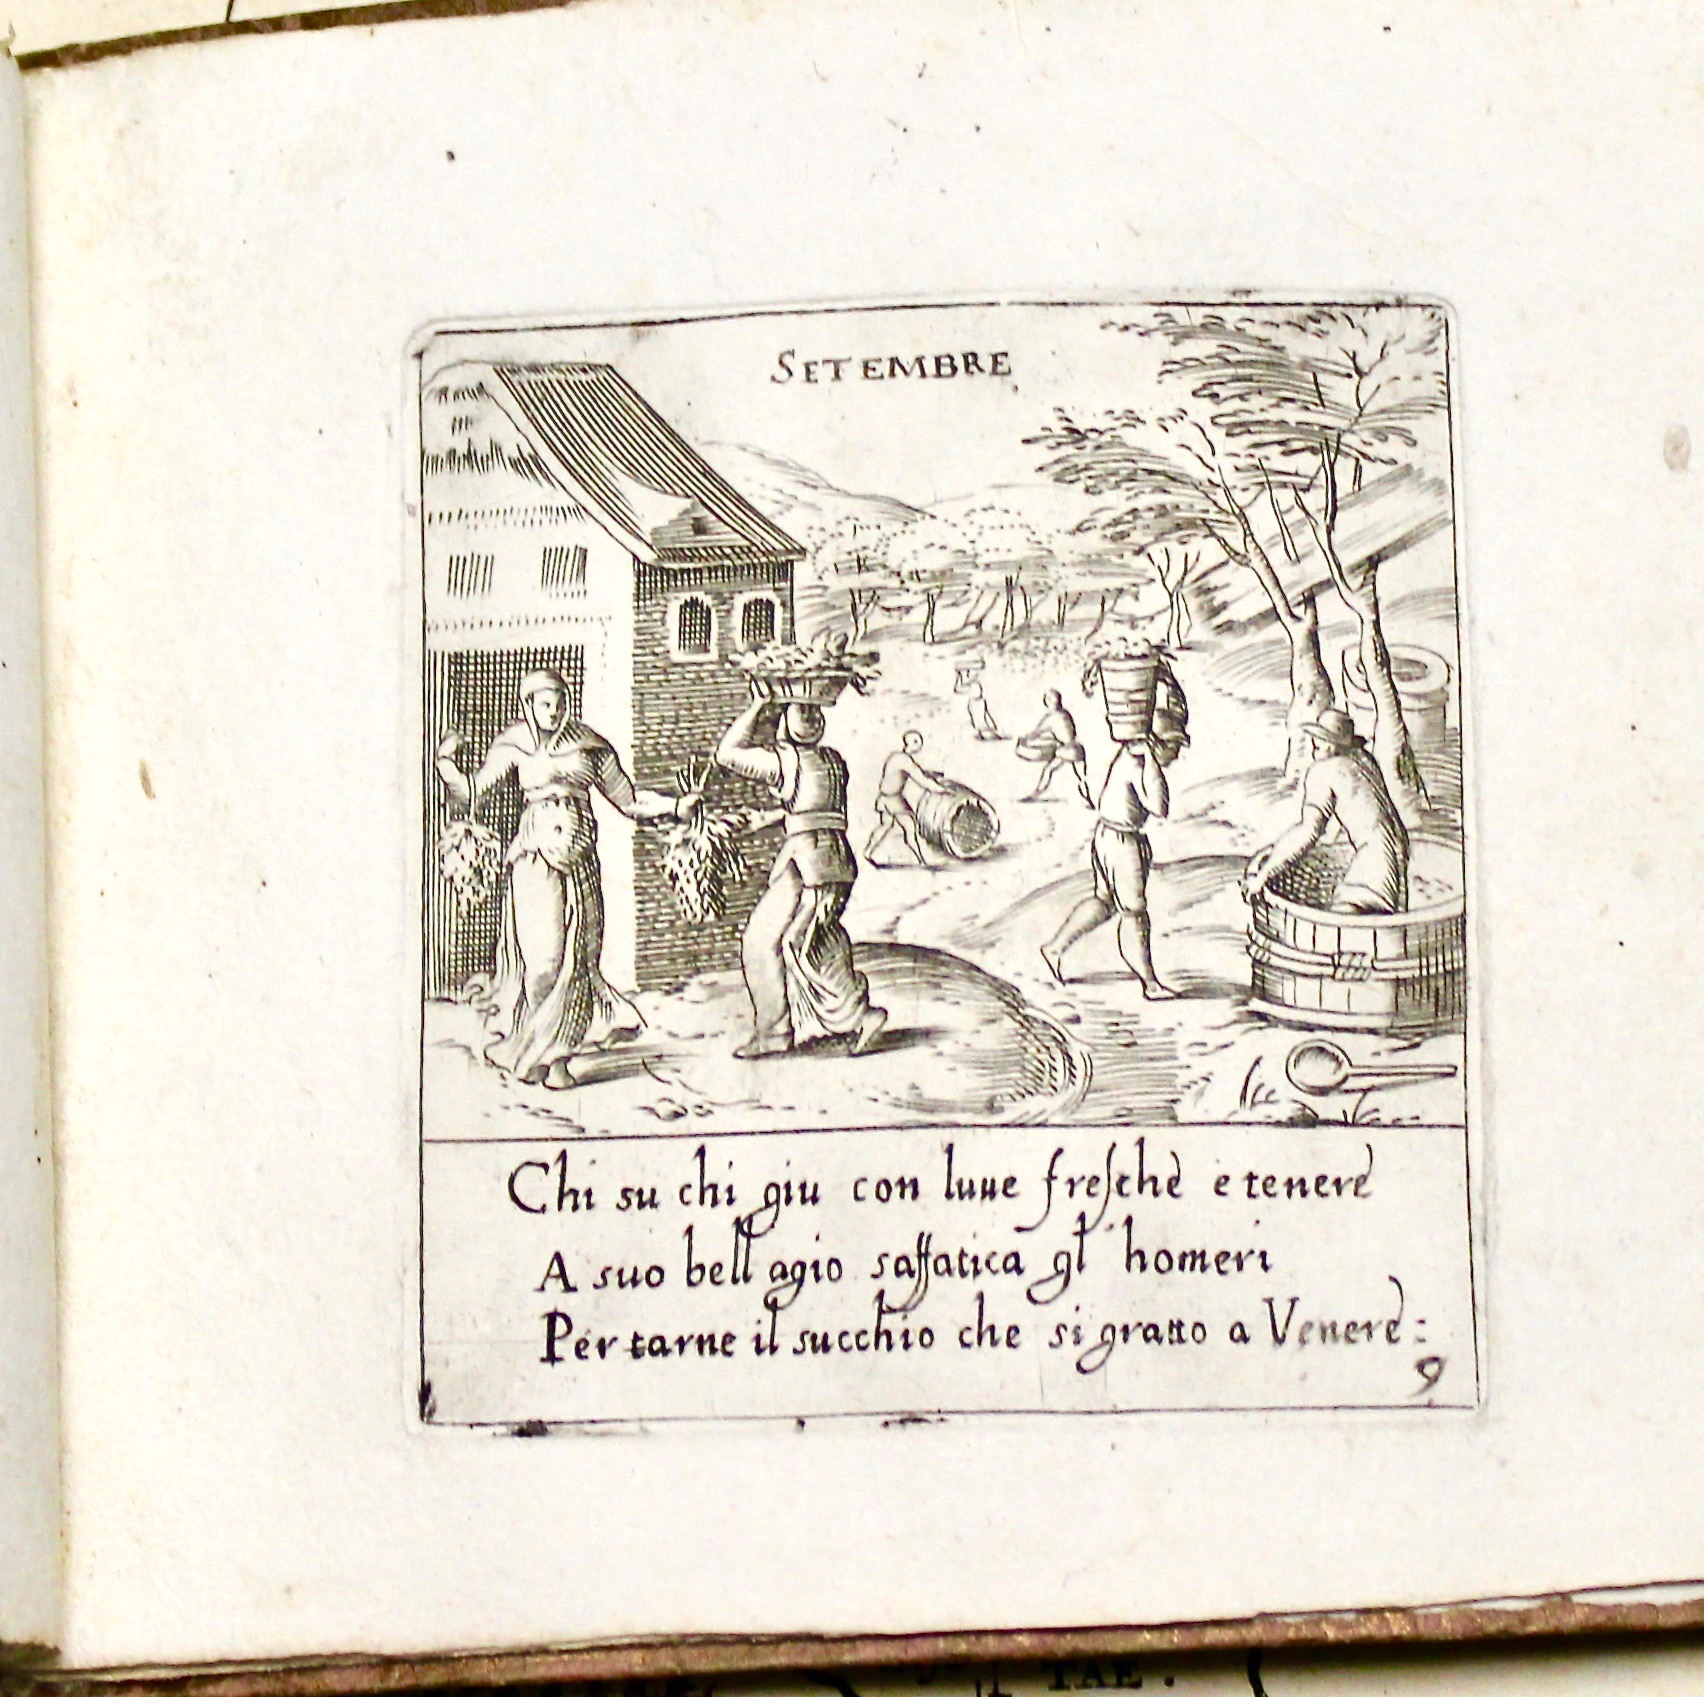 SETEMBRE
Chi su chi giu con luue fresche e tenere
A suo bell agio saffatica gl' homeri
Per tarne il succhio che si gratto a Venere:
9
TAE.